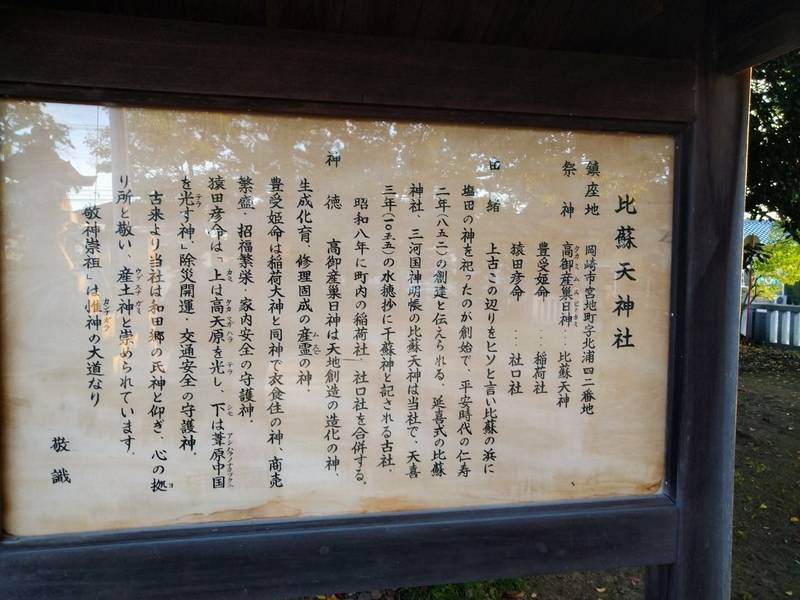 比蘇天神社
鎮座地　岡崎市宮地町字北浦四二番地
祭神　高御産巣日神…比蘇天神
タカミムスビノカミ
豊受姫命　…稲荷社
猿田彦命　…社口社
由緒　上古この辺りをヒソと言い比蘇の浜に
塩田の神を祀ったのが創始で、平安時代の仁寿
二年(八五二)の創建と伝えられる。延喜式の比蘇
神社、三河国神明帳の比蘇天神は当社で、天喜
三年(一〇五五)の水穂抄に干蘇神と記される古社。
昭和八年に町内の稲荷社、社口社を合併する。
神徳　高御産巣日神は天地創造の造化の神、
生成化育、修理固成の産霊の神。
ムスビ
豊受姫命は稲荷大神と同神で衣食住の神、商売
繁盛・招福繁栄・家内安全の守護神。
猿田彦命は「上は高天原を光し、下は葦原中国
カミ タカマガハラ テラ シモ アシハラノナカツクニ
を光す神」除災開運・交通安全の守護神。
テラ
古来より当社は和田郷の氏神と仰ぎ、心の拠
ヨ
り所と敬い、産土神と崇められています。
ウブスナガミ
敬神崇祖」は惟神の大道なり
カンナガラ
敬識